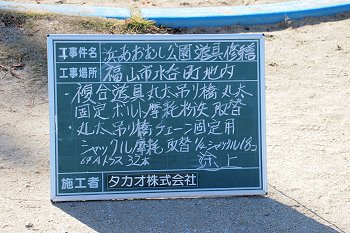 工事件名 浜あおむし公園遊具修繕
工事場所 福山市水呑町地内
・複合遊具丸太吊り橋丸太
固定ボルト摩耗紛失取替
・丸太吊り橋チェーン固定用
シャックル摩耗取替 シャックル18コ
32本 以上
施工者 タカオ株式会社